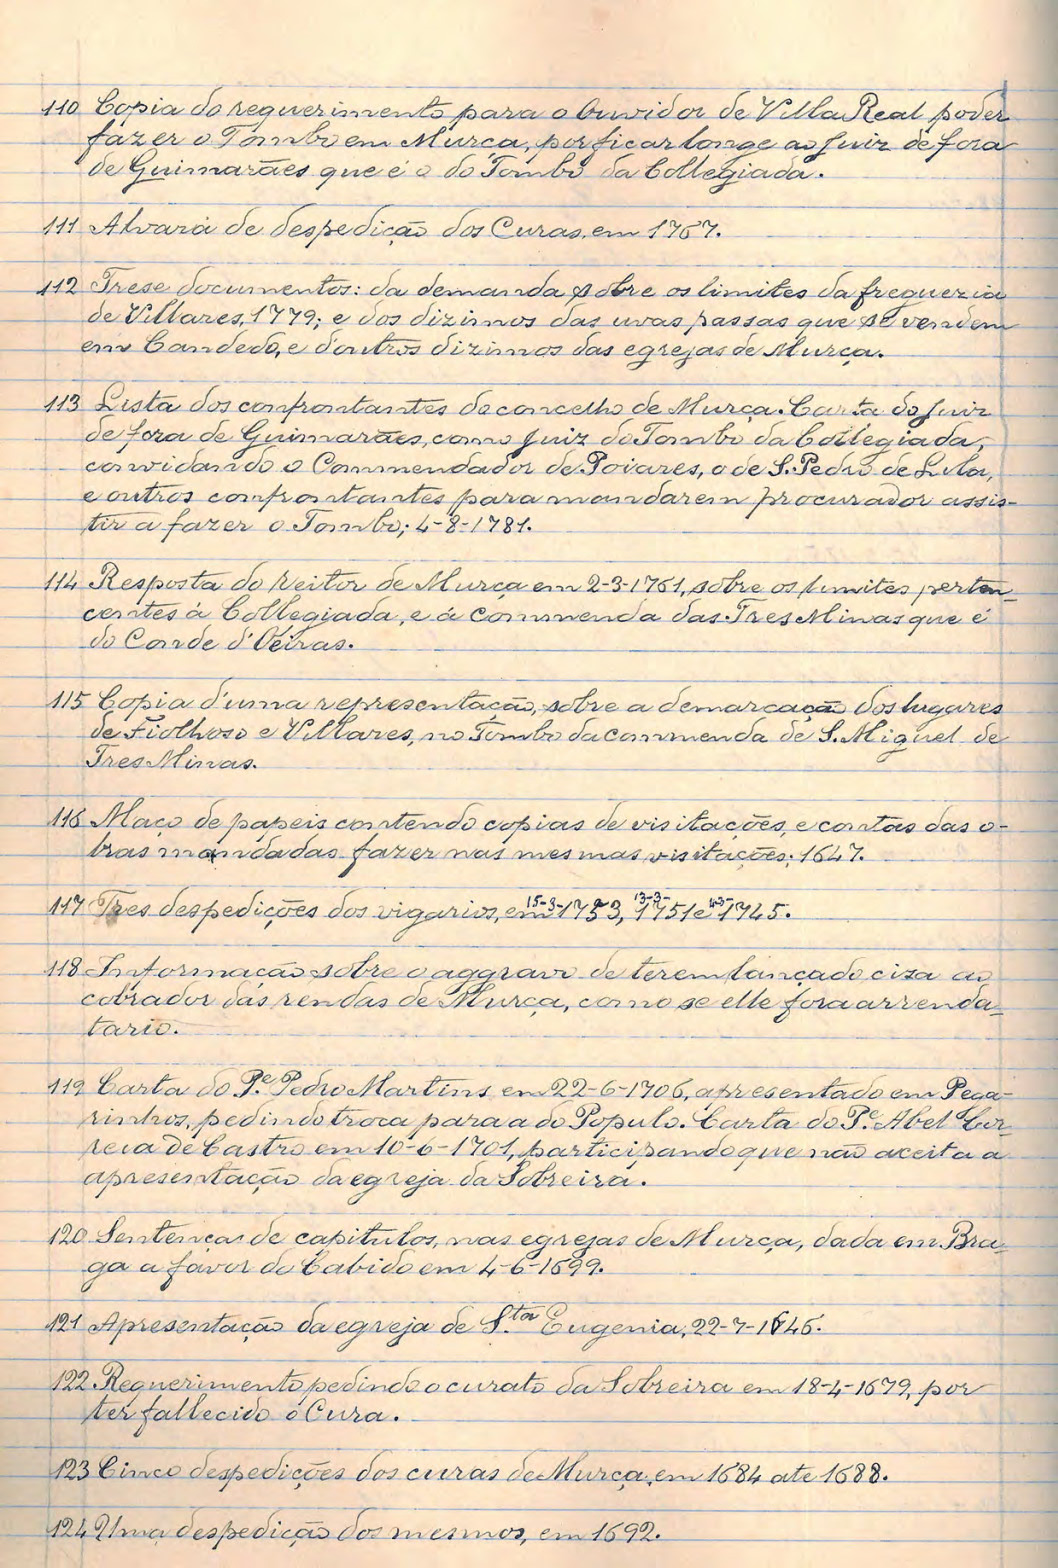 110 Copia do requerimento para o Ouvidor de Villa Real poder
fazer o Tombo em Murça, por ficar longe ao Juiz de fora
de Guimarães que é o do Tombo da Collegiada.
111 Alvará de despedição dos Curas, em 1767.
112 Trese documentos: da demanda sobre os limites da freguezia
de Villares, 1779; e dos dizimos das uvas passas que se vendem
em Candedo, e doutros dizimos das egrejas de Murça.
113 Lista dos confrontantes do concelho de Murça. Carta do Juiz
de fora de Guimarães, como Juiz do Tombo da Collegiada,
convidando o Commendador de Poiares, o de S. Pedro de Lila,
e outros confrontantes para mandarem procurador assis-
tir a fazer o Tombo; 4-8-1781.
114 Resposta do reitor de Murça em 2-3-1761, sobre os limites perten-
centes á Collegiada, e á commenda das Tres Minas que é
do Conde d'Oeiras.
115 Copia d'uma representação, sobre a demarcação dos lugares
de Fiolhoso e Villares, no Tombo da commenda de S. Miguel de
Tres Minas.
116 Maço de papeis contendo copias de visitações, e contas das o-
bras mandadas fazer nas mesmas visitações; 1647.
117 Tres despedições dos vigarios, em 15-3-1753, 13-3-1751 e 1745.
118 Informação sobre o aggravo de terem lançado ciza ao
cobrador das rendas de Murça, como se elle fora arrenda-
tario.
119 Carta do P.e Pedro Martins em 22-6-1706, apresentado em Pega-
rinhos, pedindo troca para a do Populo. Carta do P.e Abel Cor-
reia de Castro em 10-6-1701, participando que não aceita a
apresentação da egreja da Sobreira.
120 Sentenças de capitulos, nas egrejas de Murça, dada em Bra-
ga a favor do Cabido em 4-6-1699.
121 Apresentação da egreja de S.ta Eugenia, 22-7-1646.
122 Requerimento pedindo o curato da Sobreira em 18-4-1679, por
ter fallecido o Cura.
123 Cinco despedições dos curas de Murça, em 1684 ate 1688.
124 Uma despedição dos mesmos, em 1692.